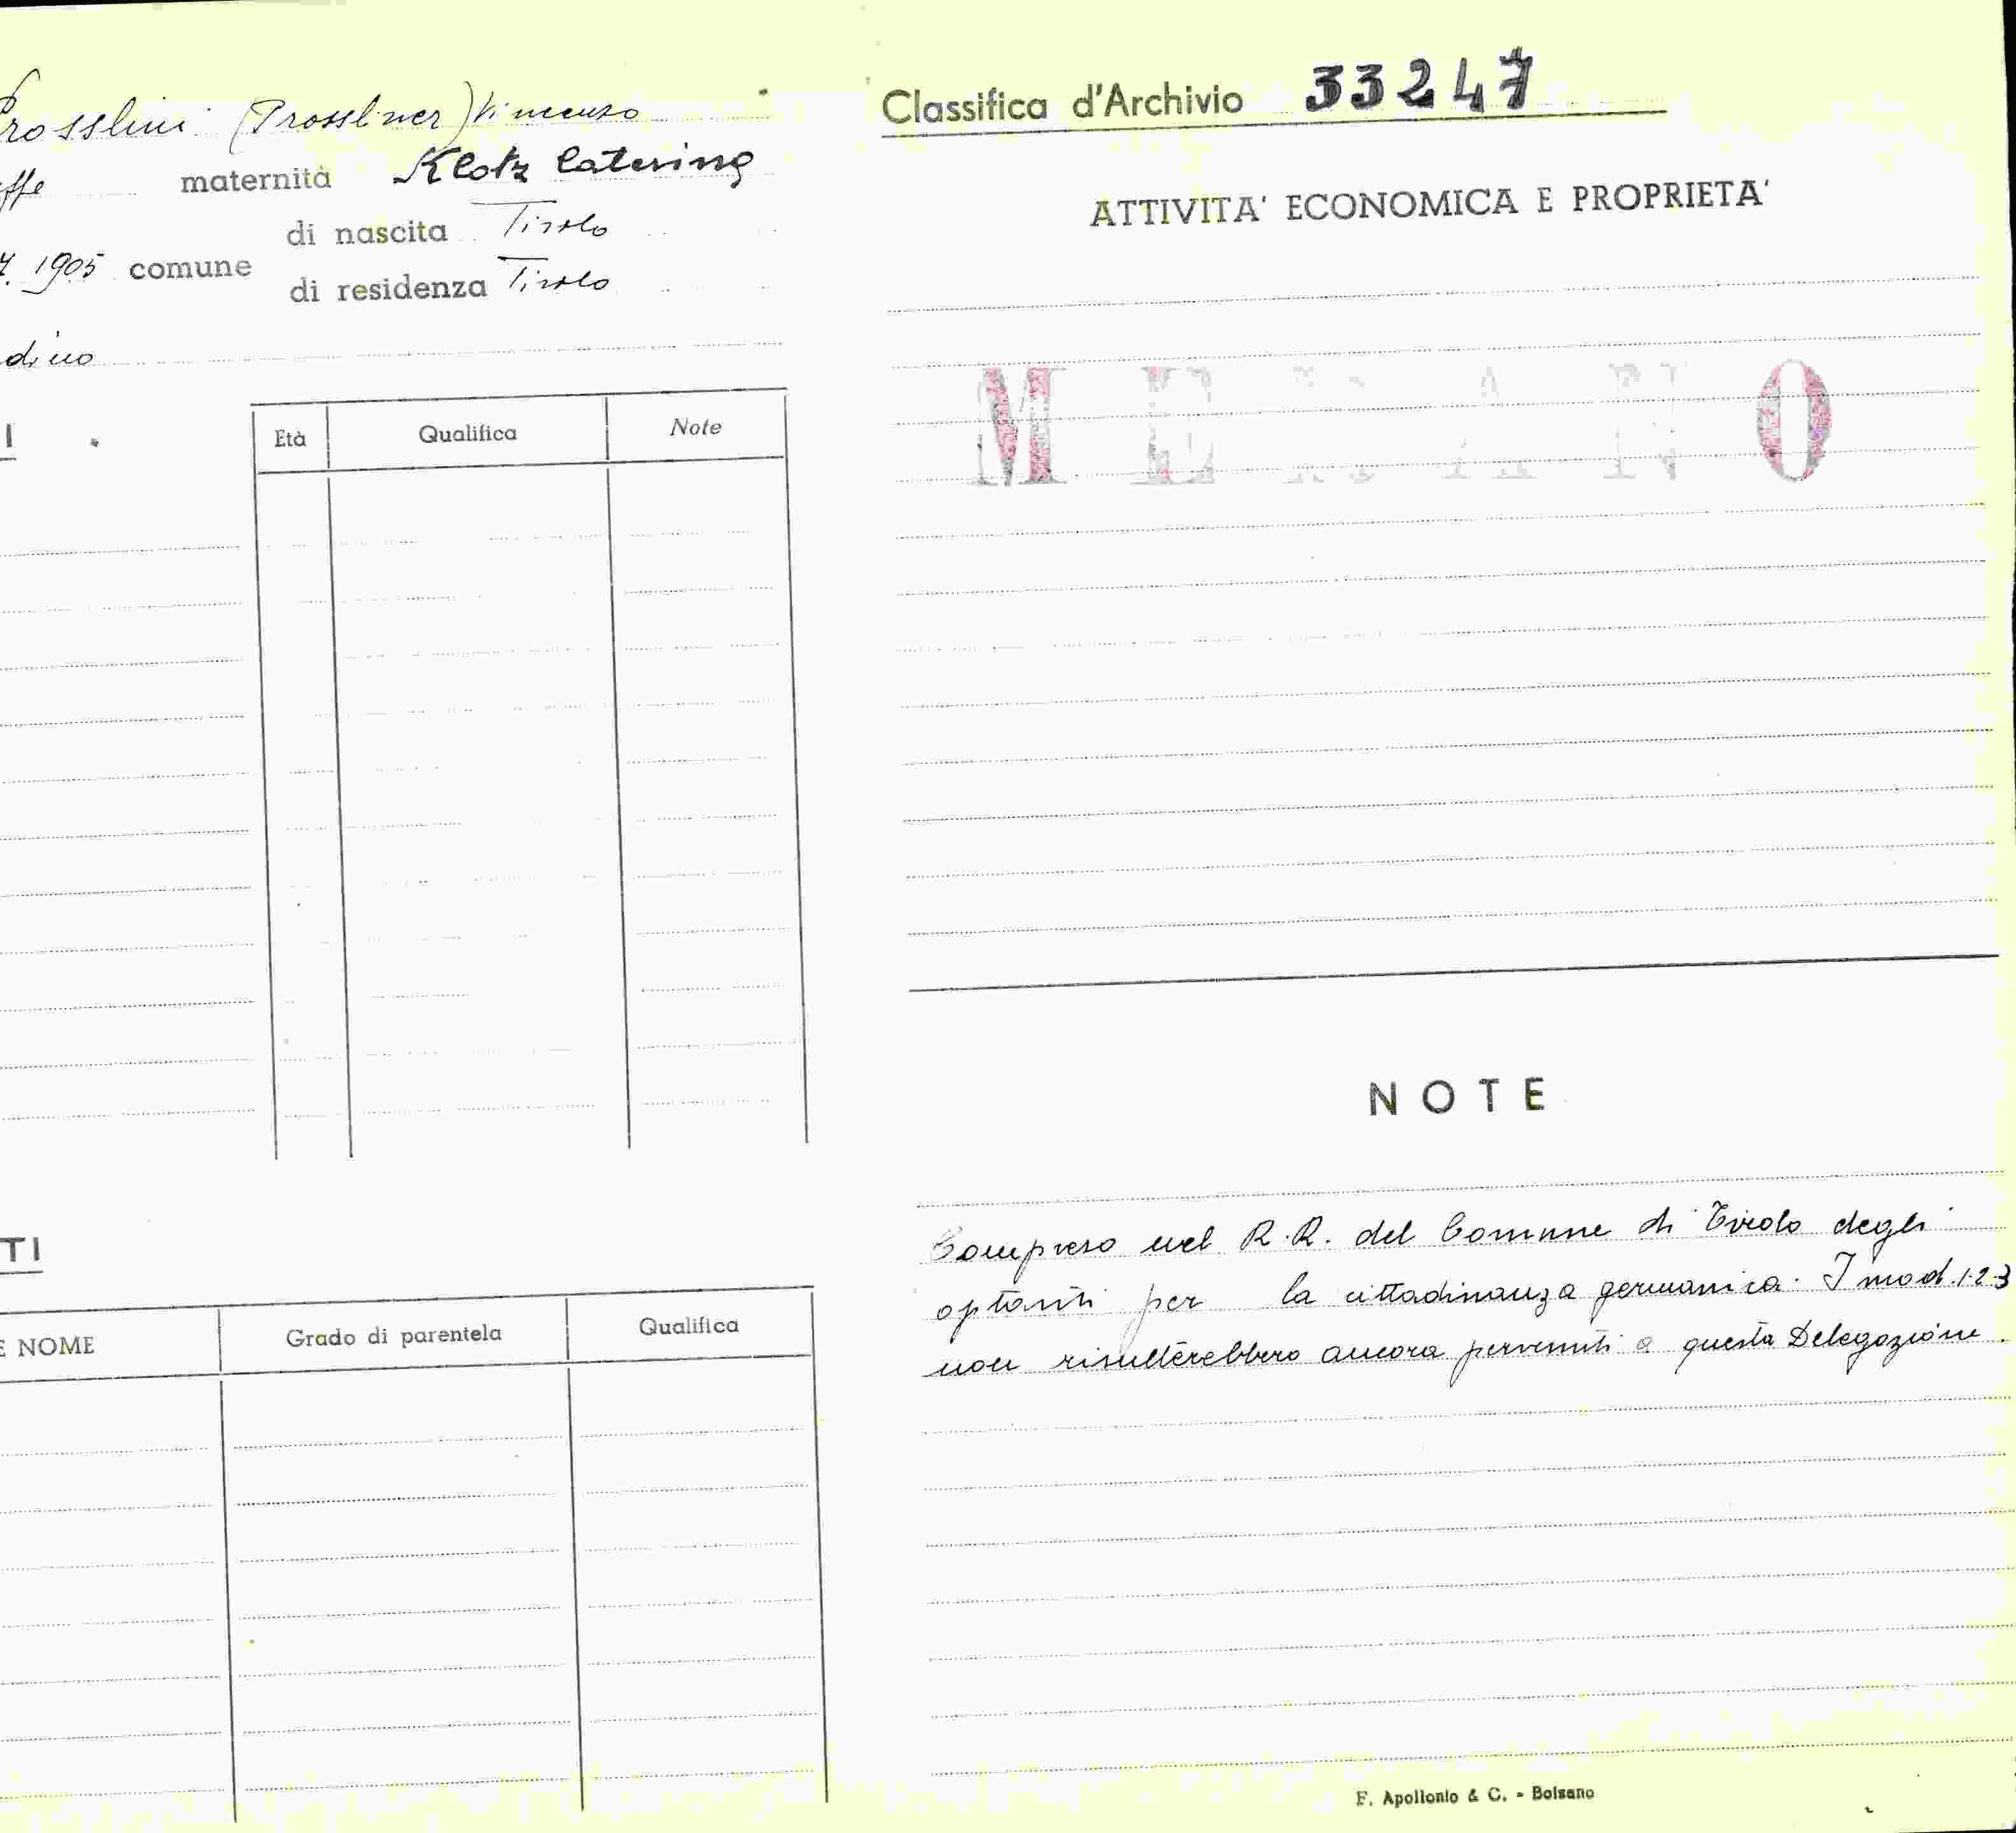 Prosslini (Prossliner) Vincenzo
effe maternità Klotz Caterina
di nascita Tirolo
1905 comune
di residenza Tirolo
dino
I
Età Qualifica Note
TI
E NOME Grado di parentela Qualifica
Classifica d'Archivio 33247
ATTIVITA' ECONOMICA E PROPRIETA'
MERANO
NOTE
Compreso nel R.R. del Comune di Tirolo degli
optanti per la cittadinanza germanica. I mod. 1-2-3
non risulterebbero ancora pervenuti a questa Delegazione.
F. Apollonio & C. - Bolzano